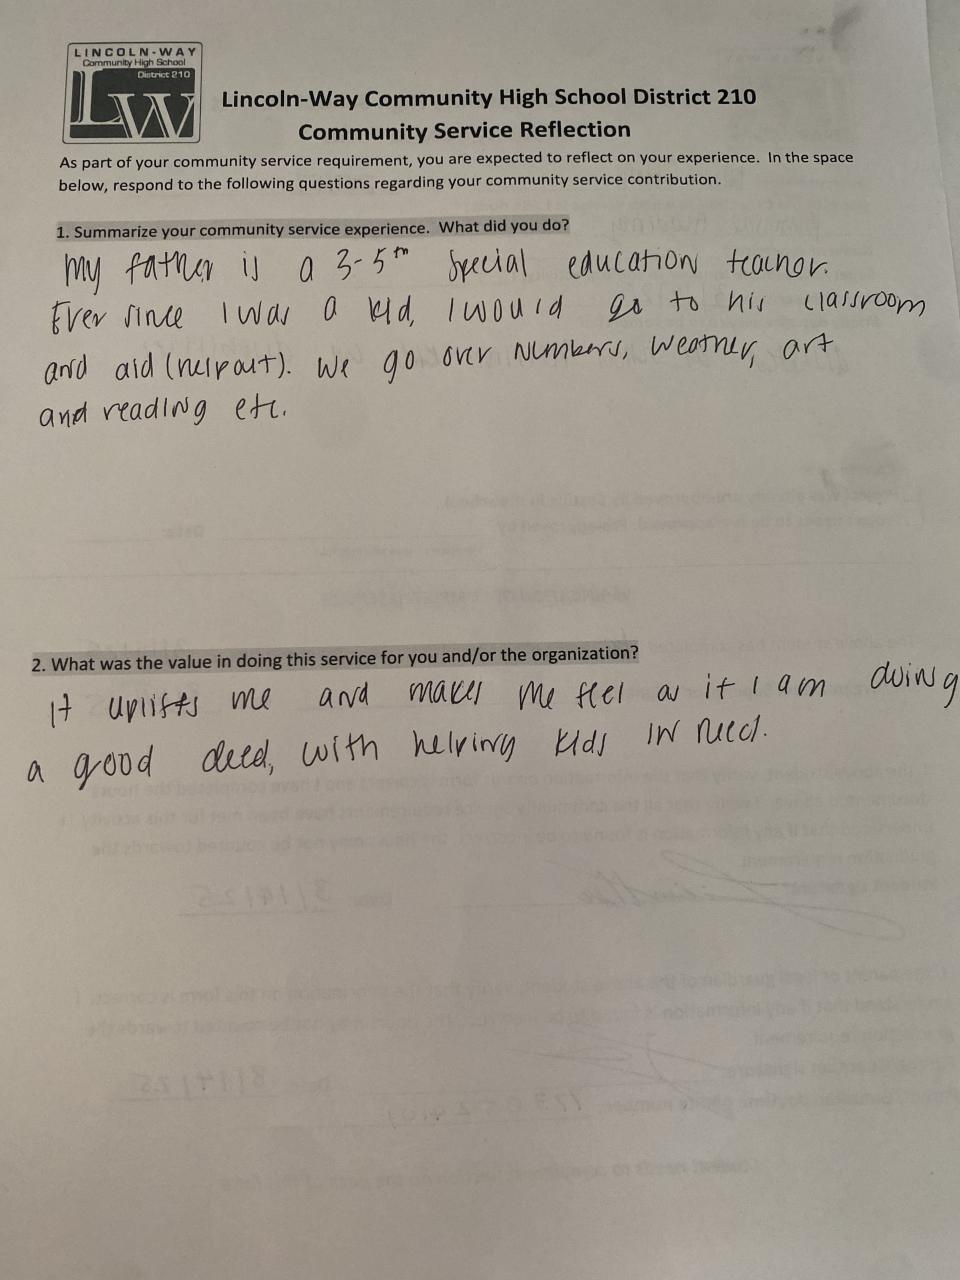 LINCOLN-WAY
Community High School
District 210
LW
Lincoln-Way Community High School District 210
Community Service Reflection
As part of your community service requirement, you are expected to reflect on your experience. In the space
below, respond to the following questions regarding your community service contribution.
1. Summarize your community service experience. What did you do?
My father is a 3-5th special education teacher.
Ever since I was a kid, I would go to his classroom
and aid (help out). We go over numbers, weather, art
and reading etc.
2. What was the value in doing this service for you and/or the organization?
It uplifts me and makes me feel as if I am doing
a good deed, with helping kids in need.